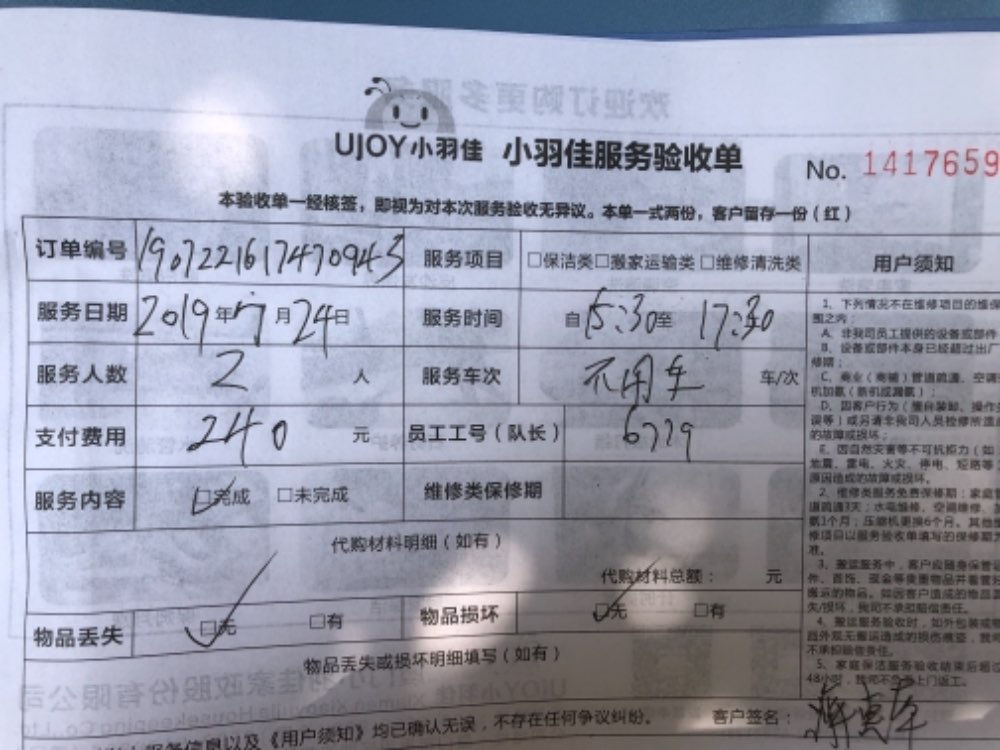 UJOY小羽佳 小羽佳服务验收单 No. 1417659
本验收单一经核签，即视为对本次服务验收无异议。本单一式两份，客户留存一份（红）
订单编号 1907221617470943 服务项目 □保洁类□搬家运输类□维修清洗类 用户须知
服务日期 2019年7月24日 服务时间 自15:30至 17:30
服务人数 2 人 服务车次 不用车 车/次
支付费用 240 元 员工工号（队长） 6779
服务内容 □完成 □未完成 维修类保修期
代购材料明细（如有）
代购材料总额： 元
物品丢失 □无 □有 物品损坏 □无 □有
物品丢失或损坏明细填写（如有）
服务信息以及《用户须知》均已确认无误，不存在任何争议纠纷。 客户签名：
1、下列情况不在维修项目的维保
围之内：
A、非我司员工提供的设备或部件
B、设备或部件本身已经超过出厂
修期；
C、商业（商铺）管道疏通、空调
机加氨（新机或漏氨）；
D、因客户行为（擅自装卸、操作
误等）或另请非我司人员检修所造
的故障或损坏；
E、因自然灾害等不可抗力（如
地震、雷电、火灾、停电、短路等
原因造成的故障或损坏。
2、维修类服务免费保修期：家庭
道疏通3天；水电维修、空调维修、
氨1个月；压缩机更换6个月。其他
修项目以服务验收单填写的保修期为
准。
3、搬运服务中，客户应随身保管
件、首饰、现金等贵重物品并看管
搬运的物品。如因客户造成的物品
失/损坏，我司不承担赔偿责任。
4、搬运服务验收时，如外包装或
品外观无搬运造成的损伤痕迹，我
不承担赔偿责任。
5、家庭保洁服务验收结束后超过
48小时，我司不负责上门返工。